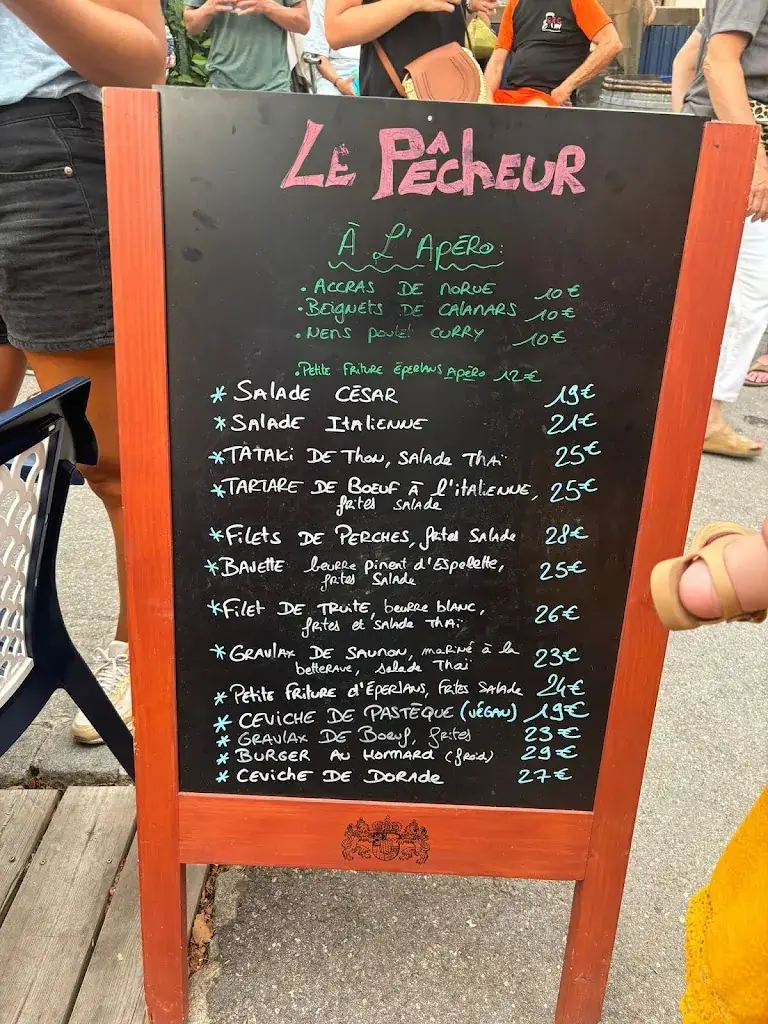 LE PÊCHEUR
À L'APÉRO:
• ACCRAS DE MORUE 10€
• BEIGNETS DE CALAMARS 10€
• NEMS POULET CURRY 10€
• Petite FRITURE ÉPERLANS APÉRO 12€
* SALADE CÉSAR 19€
* SALADE ITALIENNE 21€
* TATAKI DE THON, SALADE THAÏ 25€
* TARTARE DE BOEUF À l'ITALIENNE, 25€
frites SALADE
* FILETS DE PERCHES, frites SALADE 28€
* BAVETTE beurre piment d'Espelette, 25€
frites SALADE
* FILET DE TRUITE, beurre blanc, 26€
frites et SALADE THAÏ
* GRAVLAX DE SAUMON, mariné à la 23€
betterave, salade Thaï
* Petite FRITURE d'ÉPERLANS, FRITES SALADE 24€
* CEVICHE DE PASTÈQUE (VÉGAN) 19€
* GRAVLAX DE BOEUF, frites 23€
* BURGER AU HOMMARD (froid) 29€
* CEVICHE DE DORADE 27€